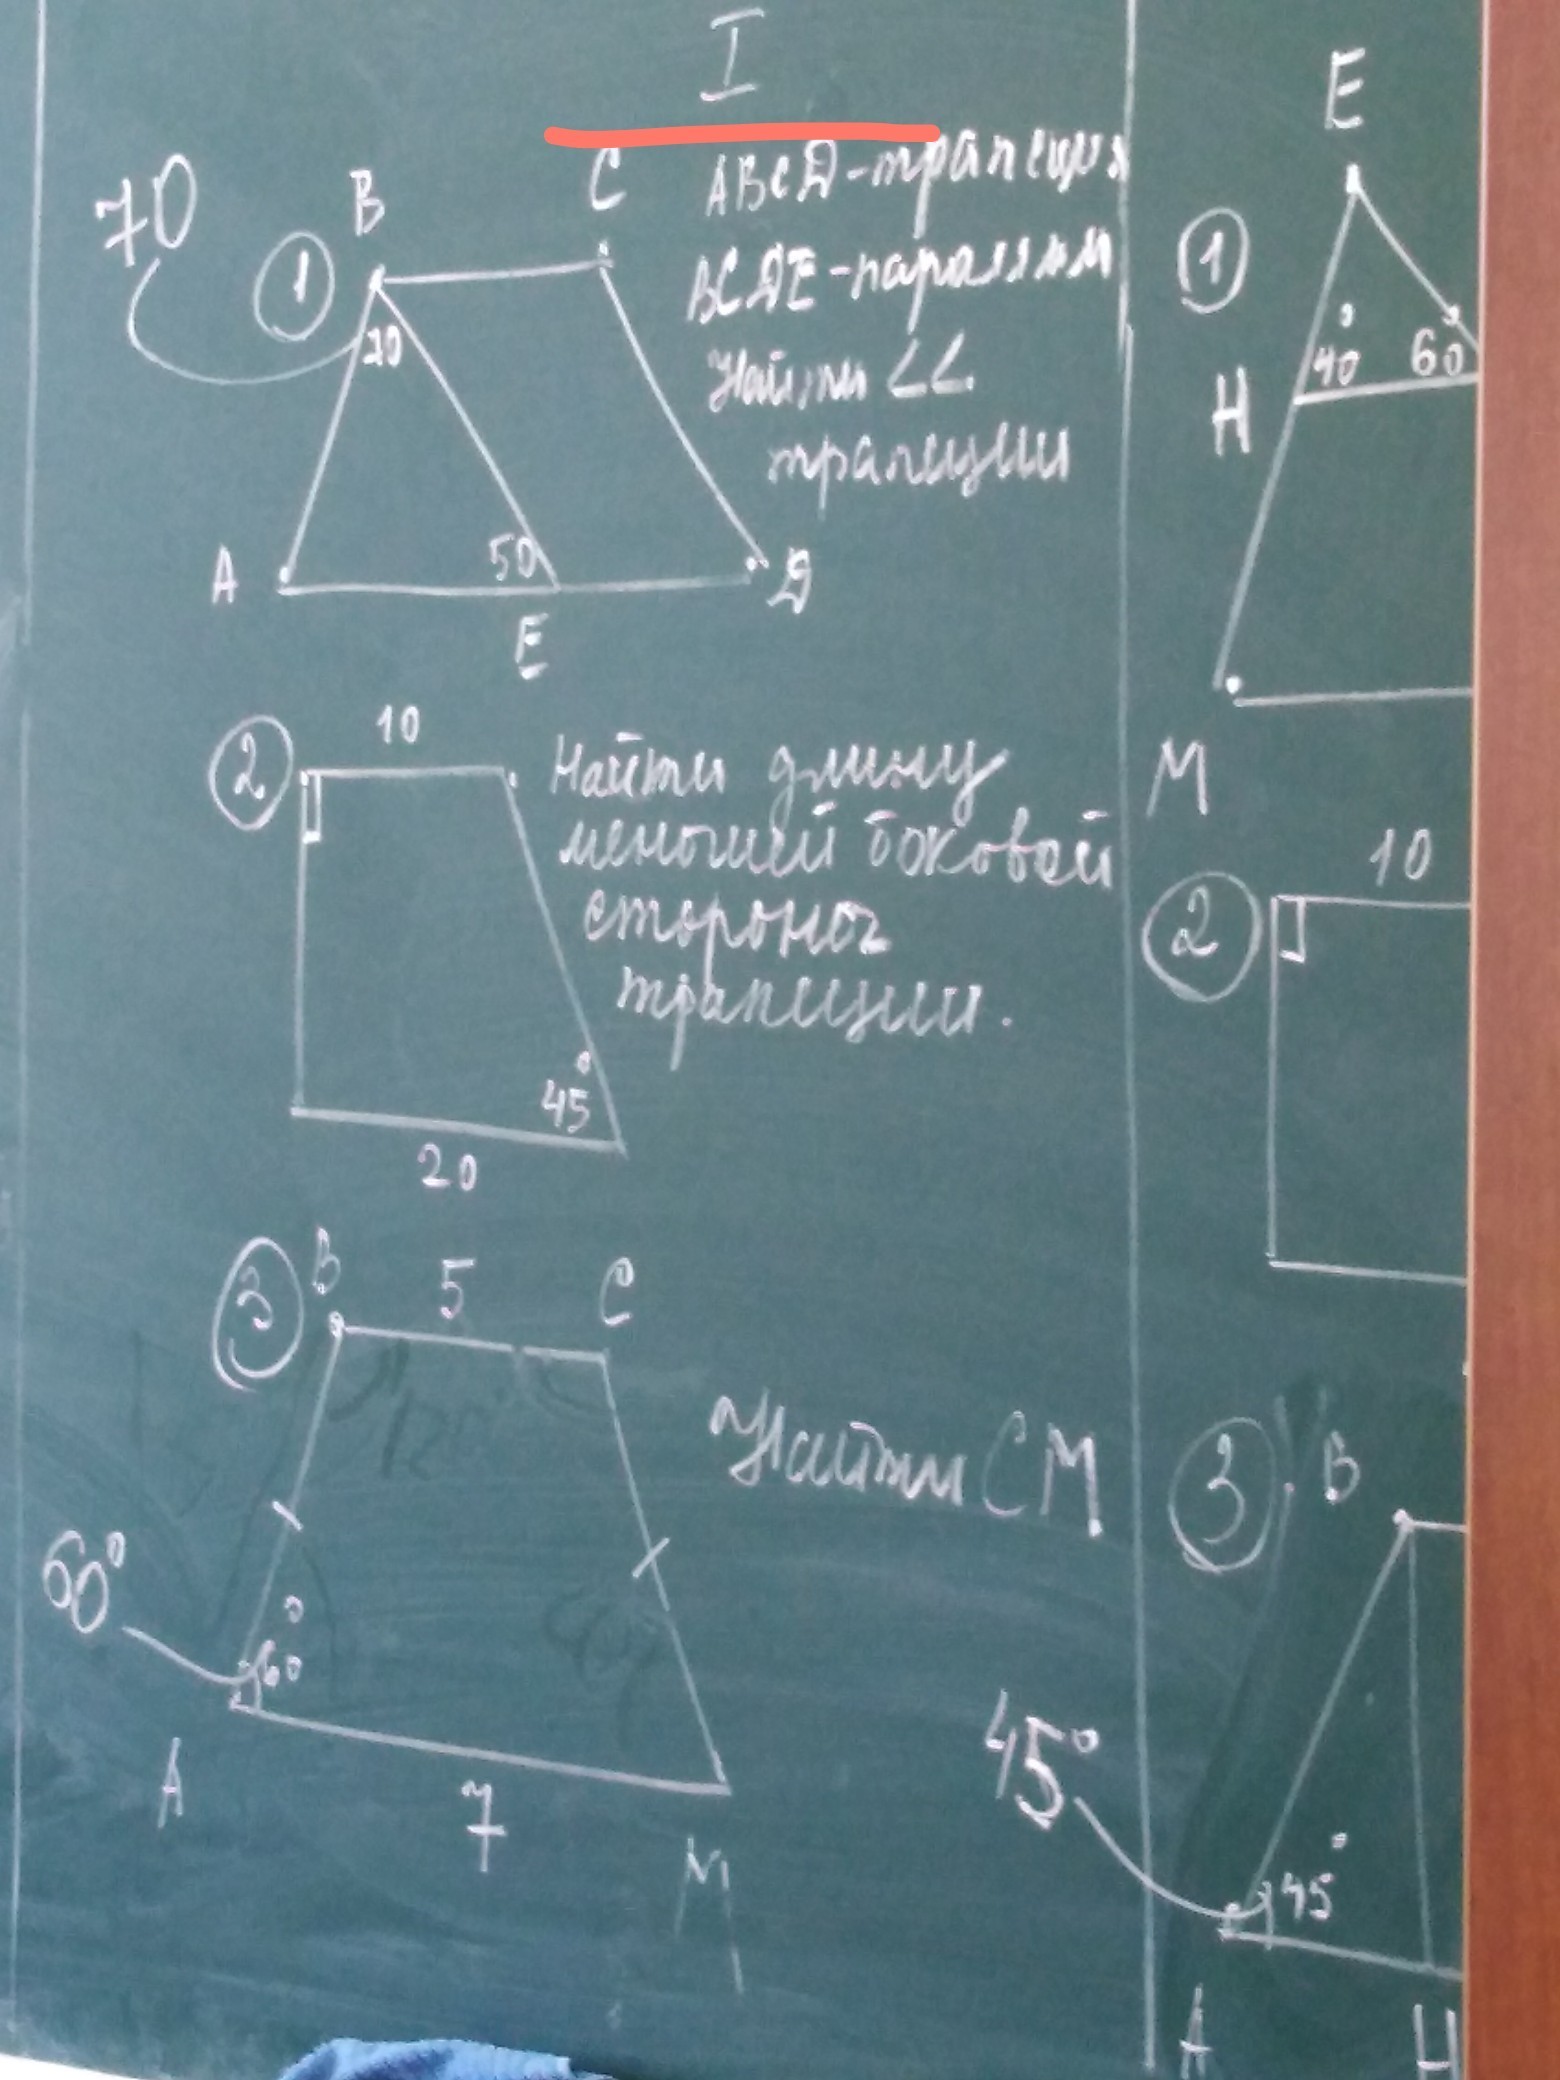 I
70
B
C
ABCD-трапеция
①
BCDE-паралл-м
70
Найти ∠∠
трапеции
50
A
E
D
②
10
Найти длину
меньшей боковой
стороны
трапеции.
45°
20
③
B
5
C
Найти CM
60°
60°
A
7
M
E
①
40°
60
H
M
②
10
③
B
45°
45°
A
H